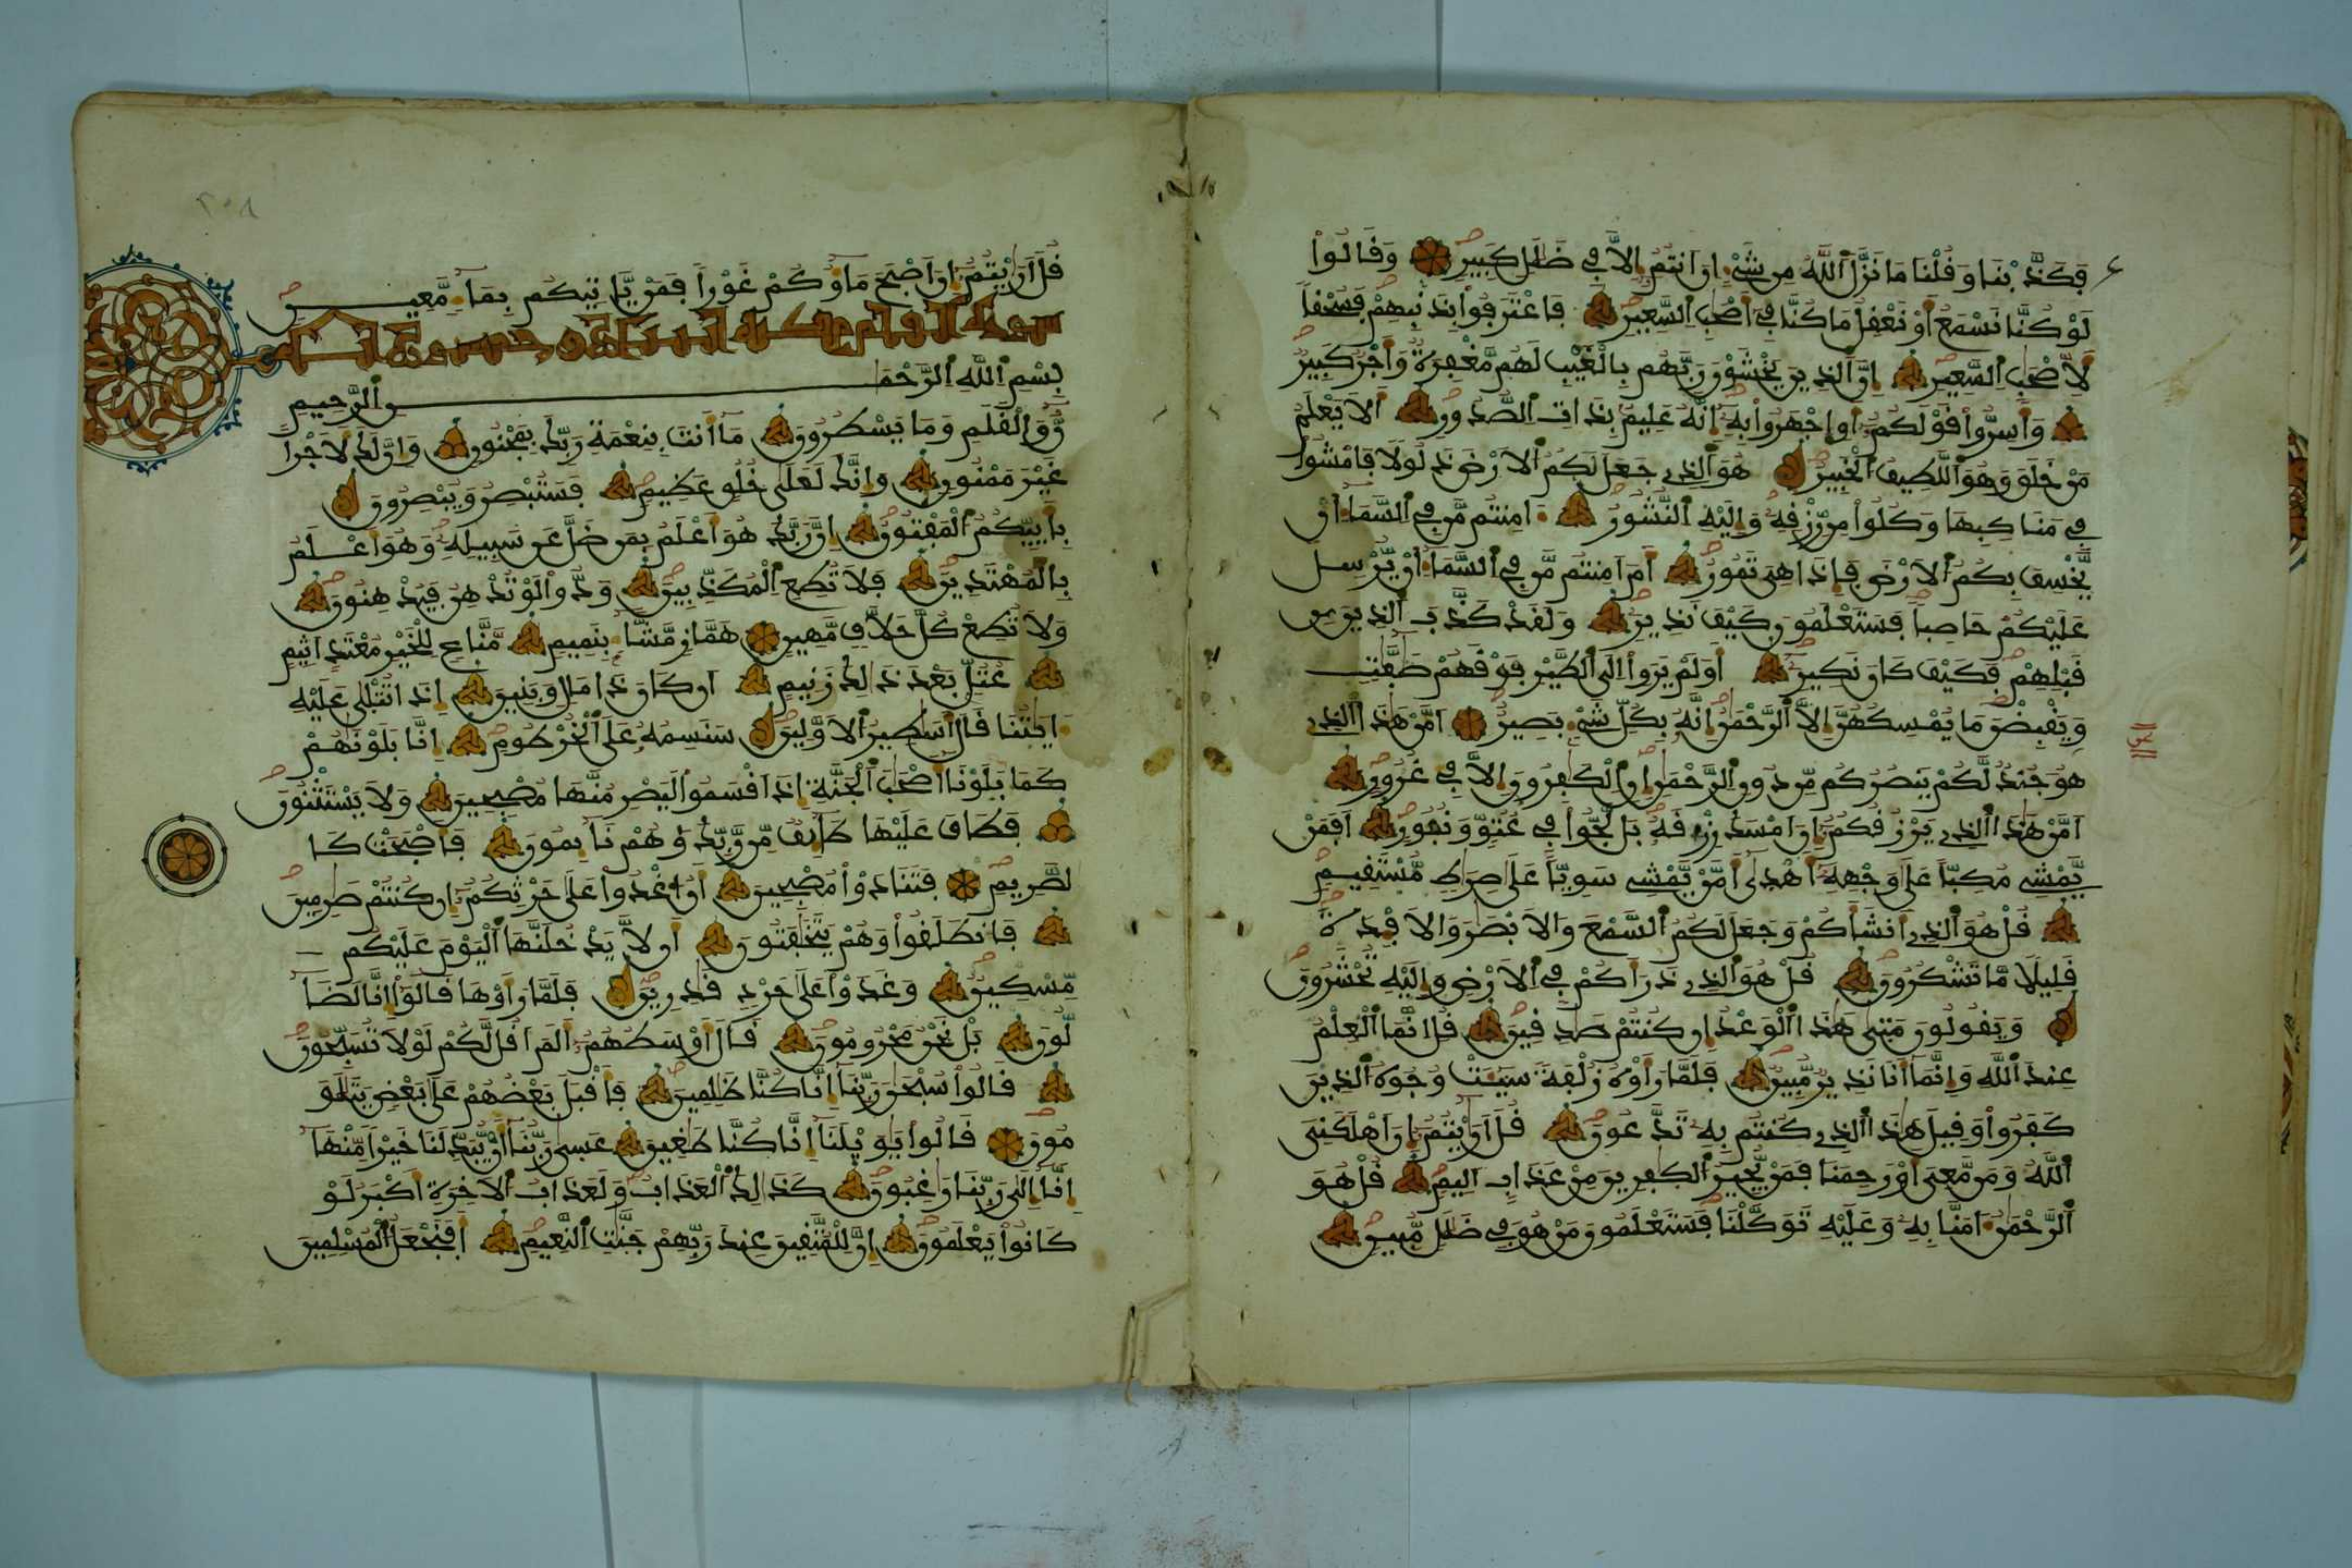 فكذبنا وقلنا ما نزل الله من شيء ان انتم الا في ضلل كبير وقالوا
لو كنا نسمع او نعقل ما كنا في أصحب السعير فاعترفوا بذنبهم فسحقا
لأصحب السعير ان الذين يخشون ربهم بالغيب لهم مغفرة واجر كبير
واسروا قولكم او اجهروا به انه عليم بذات الصدور الا يعلم
من خلق وهو اللطيف الخبير هو الذي جعل لكم الارض ذلولا فامشوا
في مناكبها وكلوا من رزقه واليه النشور ءامنتم من في السماء ان
يخسف بكم الارض فإذا هي تمور أم امنتم من في السماء ان يرسل
عليكم حاصبا فستعلمون كيف نذير ولقد كذب الذين من
قبلهم فكيف كان نكير اولم يروا الى الطير فوقهم صفت
ويقبضن ما يمسكهن الا الرحمن انه بكل شيء بصير امن هذا الذي
هو جند لكم ينصركم من دون الرحمن ان الكفرون الا في غرور
امن هذا الذي يرزقكم ان امسك رزقه بل لجوا في عتو ونفور افمن
يمشي مكبا على وجهه أهدى امن يمشي سويا على صرط مستقيم
قل هو الذي انشأكم وجعل لكم السمع والابصر والافدة
قليلا ما تشكرون قل هو الذي ذرأكم في الارض واليه تحشرون
ويقولون متى هذا الوعد ان كنتم صدقين قل انما العلم
عند الله وانما أنا نذير مبين فلما رأوه زلفة سيئت وجوه الذين
كفروا وقيل هذا الذي كنتم به تدعون قل أريتم ان اهلكني
الله ومن معي او رحمنا فمن يجير الكفرين من عذاب اليم قل هو
الرحمن ءامنا به وعليه توكلنا فستعلمون من هو في ضلل مبين
قل أريتم ان اصبح ماؤكم غورا فمن ياتيكم بماء معين
بسم الله الرحمن الرحيم
ن والقلم وما يسطرون ما أنت بنعمة ربك بمجنون وان لك لأجرا
غير ممنون وانك لعلى خلق عظيم فستبصر ويبصرون
بأييكم المفتون ان ربك هو اعلم بمن ضل عن سبيله وهو اعلم
بالمهتدين فلا تطع المكذبين ودوا لو تدهن فيدهنون
ولا تطع كل حلاف مهين هماز مشاء بنميم مناع للخير معتد اثيم
عتل بعد ذلك زنيم ان كان ذا مال وبنين إذا تتلى عليه
ءايتنا قال أسطير الاولين سنسمه على الخرطوم انا بلونهم
كما بلونا أصحب الجنة اذ اقسموا ليصرمنها مصبحين ولا يستثنون
فطاف عليها طائف من ربك وهم نائمون فأصبحت كا
لصريم فتنادوا مصبحين ان اغدوا على حرثكم ان كنتم صرمين
فانطلقوا وهم يتخفتون ان لا يدخلنها اليوم عليكم
مسكين وغدوا على حرد قدرين فلما رأوها قالوا انا لضا
لون بل نحن محرومون قال أوسطهم الم اقل لكم لولا تسبحون
قالوا سبحن ربنا انا كنا ظلمين فأقبل بعضهم على بعض يتلو
مون قالوا يويلنا انا كنا طغين عسى ربنا ان يبدلنا خيرا منها
انا الى ربنا رغبون كذلك العذاب ولعذاب الاخرة اكبر لو
كانوا يعلمون ان للمتقين عند ربهم جنت النعيم أفنجعل المسلمين